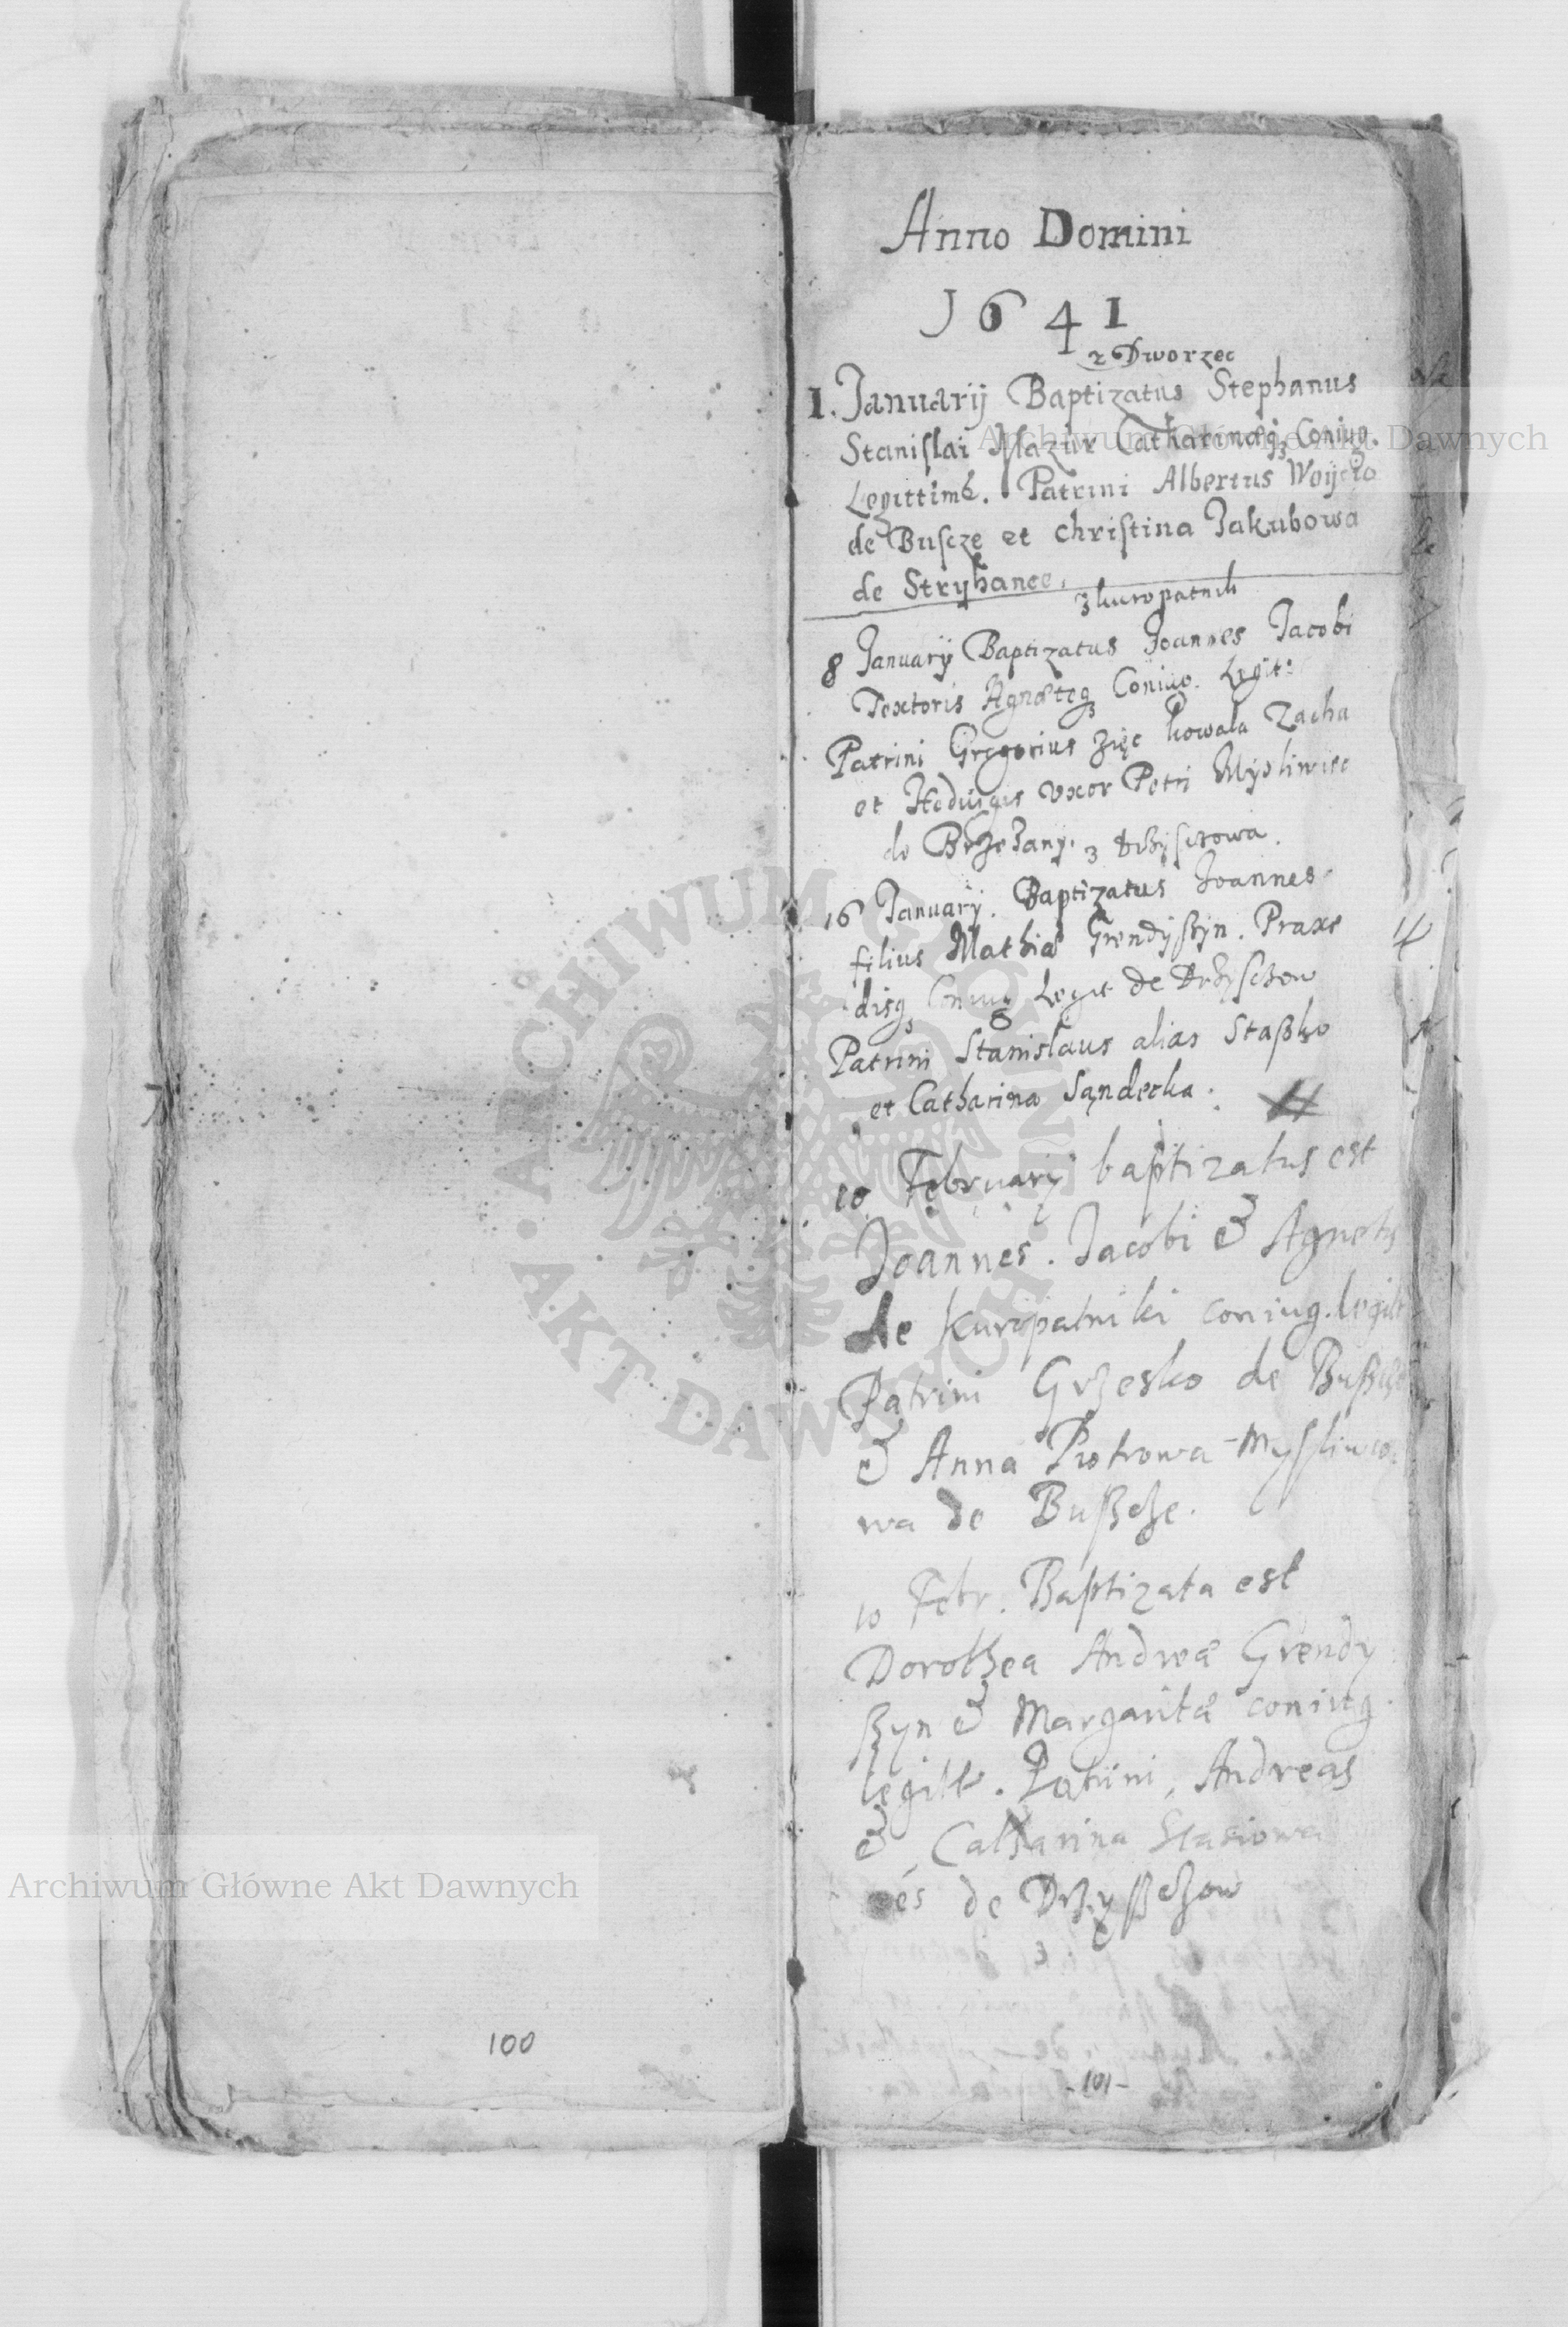 Anno Domini
1641
z Dworzec
1. Januarij Baptizatus Stephanus
Stanislai Mazur Catharinæq3 Coniug.
Legittimæ. Patrini Albertus Woijcio
de Buscze et Christina Jakubowa
de Stryhance.
z kuropatnik
8 Januarij Baptizatus Joannes Jacobi
Textoris Agnæteq3 Coniug. Legit:
Patrini Gregorius Zięc kowala Zacha
et Hedwigis vxor Petri Mysliwiec
de Brzezany. z drzysczowa.
16 Januarij. Baptizatus Joannes
filius Mathiæ Grendyszyn. Praxe
disq3 Coniug Legit de Drzysczow
Patrini Stanislaus alias Staszko
et Catharina Sandecka.
10 Februarij baptizatus est
Joannes. Jacobi & Agnetis
de Kuropatniki coniug. legitt
Patrini Grzesko de Buszcze
& Anna Piotrowa Mysliwco
wa de Buszcze.
10 Febr. Baptizata est
Dorothea Andreæ Grendy
szyn & Margaritæ coniug.
legitt. Patrini, Andreas
& Catharina Stasiowa
de Drzyszczow
100
-101-
Archiwum Główne Akt Dawnych
Archiwum Główne Akt Dawnych
ARCHIWUM GŁÓWNE · AKT DAWNYCH ·